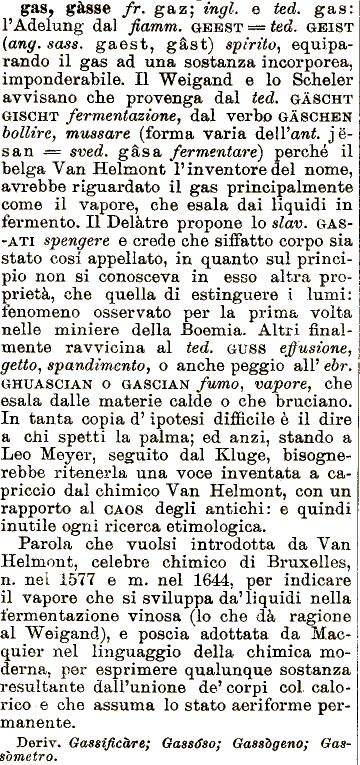 gas, gàsse fr. gaz; ingl. e ted. gas:
l'Adelung dal fiamm. GEEST = ted. GEIST
(ang. sass. gaest, gâst) spirito, equipa-
rando il gas ad una sostanza incorporea,
imponderabile. Il Weigand e lo Scheler
avvisano che provenga dal ted. GÄSCHT
GISCHT fermentazione, dal verbo GÄSCHEN
bollire, mussare (forma varia dell'ant. jë-
san = sved. gâsa fermentare) perchè il
belga Van Helmont l'inventore del nome,
avrebbe riguardato il gas principalmente
come il vapore, che esala dai liquidi in
fermento. Il Delàtre propone lo slav. GAS-
-ATI spengere e crede che siffatto corpo sia
stato così appellato, in quanto sul princi-
pio non si conosceva in esso altra pro-
prietà, che quella di estinguere i lumi:
fenomeno osservato per la prima volta
nelle miniere della Boemia. Altri final-
mente ravvicina al ted. GUSS effusione,
getto, spandimento, o anche peggio all' ebr.
GHUASCIAN o GASCIAN fumo, vapore, che
esala dalle materie calde o che bruciano.
In tanta copia d' ipotesi difficile è il dire
a chi spetti la palma; ed anzi, stando a
Leo Meyer, seguito dal Kluge, bisogne-
rebbe ritenerla una voce inventata a ca-
priccio dal chimico Van Helmont, con un
rapporto al CAOS degli antichi: e quindi
inutile ogni ricerca etimologica.
Parola che vuolsi introdotta da Van
Helmont, celebre chimico di Bruxelles,
n. nel 1577 e m. nel 1644, per indicare
il vapore che si sviluppa da' liquidi nella
fermentazione vinosa (lo che dà ragione
al Weigand), e poscia adottata da Mac-
quier nel linguaggio della chimica mo-
derna, per esprimere qualunque sostanza
resultante dall'unione de' corpi col calo-
rico e che assuma lo stato aeriforme per-
manente.
Deriv. Gassificàre; Gassóso; Gassògeno; Gas-
sòmetro.